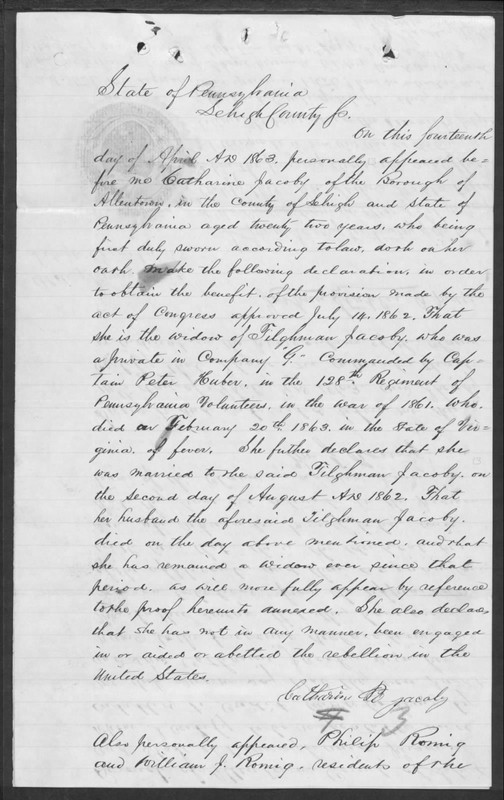 State of Pennsylvania
Lehigh County Ss.
On this fourteenth
day of April A.D 1863. personally appeared be-
fore me Catharine Jacoby of the Borough of
Allentown, in the County of Lehigh and State of
Pennsylvania aged twenty two years, who being
first duly sworn according to law, doth on her
oath, make the following declaration, in order
to obtain the benefit, of the provision made by the
act of Congress approved July 14. 1862. That
she is the widow of Tilghman Jacoby, who was
a private in Company "G." Commanded by Cap-
tain Peter Huber, in the 128th Regiment of
Pennsylvania Volunteers, in the war of 1861. who
died on February 20th 1863. in the State of Vir-
ginia, of fever. She futher declares that she
was married to the said Tilghman Jacoby, on
the second day of August A.D 1862. That
her husband the aforesaid Tilghman Jacoby.
died on the day above mentioned, and that
she has remained a widow ever since that
period, as will more fully appear by reference
to the proof hereunto annexed. She also declares
that she has not in any manner, been engaged
in or aided or abetted the rebellion in the
United States.
Catharine Jacoby
3
Also personally appeared, Philip Romig
and William J. Romig, residents of the